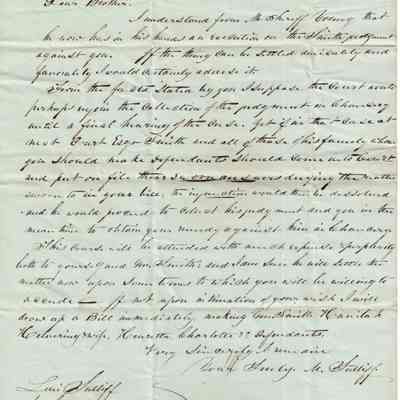 Dear Brother.
I understand from Mr Sheriff Young that
he now has in his hands an execution on the Smith judgment
against you. If the thing can be settled amicably and
favorably I would certainly advise it.
From the facts stated by you I suppose the Court would
perhaps enjoin the Collection of the judgment in Chancery
until a final hearing of the Case. Yet if in that Case at
next Court Esqr Smith and all of those of his family whom
you should make Defendants should come into Court
and put on file their answers denying the matter
sworn to in your bill, the injunction would then be dissolved
and he would proceed to Collect his judgment and you in the
mean time to obtain your remedy against him in Chancery
This Course will be attended with much expense & perplexity
both to yourself and Mr Smith and I am sure he will settle the
matter now upon some terms to which you will be willing to
accede — If not upon intimation of your wish I will
draw up a Bill immediately making Smith
his wife, Henrietta Charlotte Defendants.
Very Sincerely I remain
Yours Truly M. Sutliff
Levi Sutliff